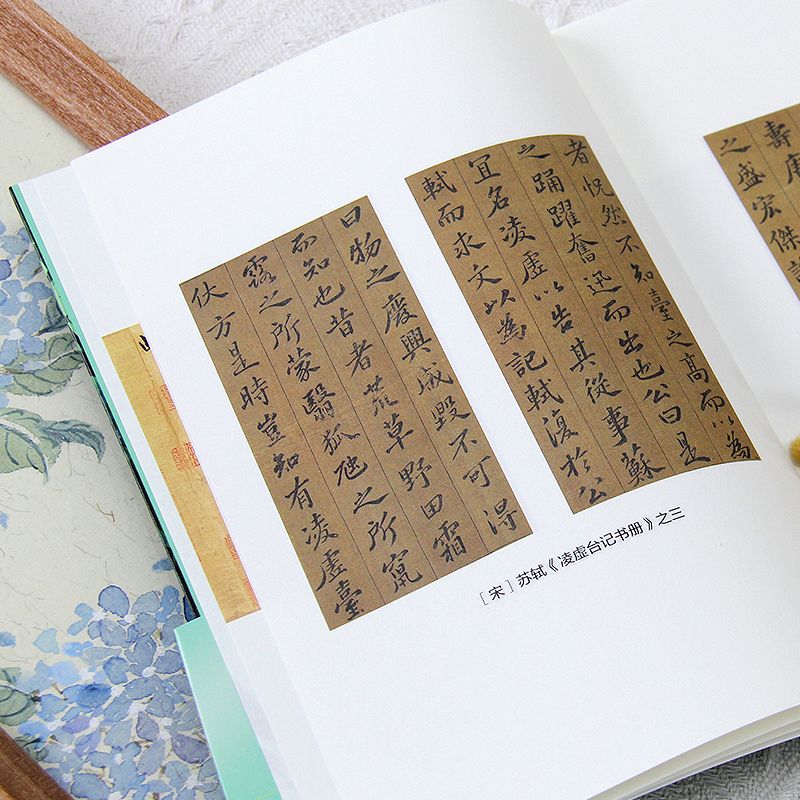 壽唐
之盛宏傑
者怳然不知臺之高而以為
之踊躍奮迅而出也公曰是
宜名凌虛以告其從事蘇
軾而求文以為記軾復於公
曰物之廢興成毀不可得
而知也昔者荒草野田霜
露之所蒙翳狐虺之所竄
伏方是時豈知有凌虛臺
［宋］苏轼《凌虚台记书册》之三